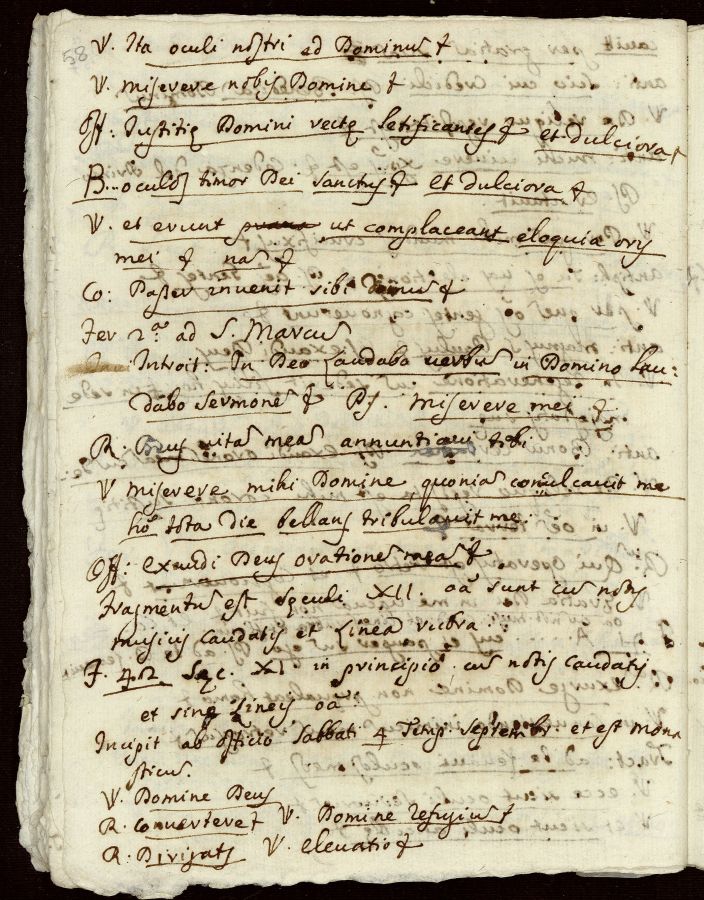 58
V. Ita oculi nostri ad Dominū &
V. miserere nobis Domine &
Off: Iustitię Domini rectę letificantes & et dulciora &
B. oculos timor Dei sanctus & et dulciora &
V. et erunt ut complaceant eloquia oris
mei & nā &
Co: Passer invenit sibi domū &
Fer 2ᵃ ad S. Marcū
Introit: In Deo Laudabo verbū in Domino lau-
dabo sermonē & Ps. miserere mei &
R. Deus vitā meā annuntiavi tibi
V miserere mihi Domine quoniā conculcavit me
hō tota Die bellans tribulavit me.
Off: exaudi Deus orationē meā &
Fragmentū est Seculi XII. oā sunt cū notis
musicis caudatis et Linea rubra
F. 42. Sęc. XI in principio cū notis caudatis
et sine Lineis oā
Incipit ab officio Sabbati 4 Temp. Septembr. et est mona
sticū.
V. Domine Deus
R. convertere & V. Domine refugiū &
R. Dirigatr V. elevatio &